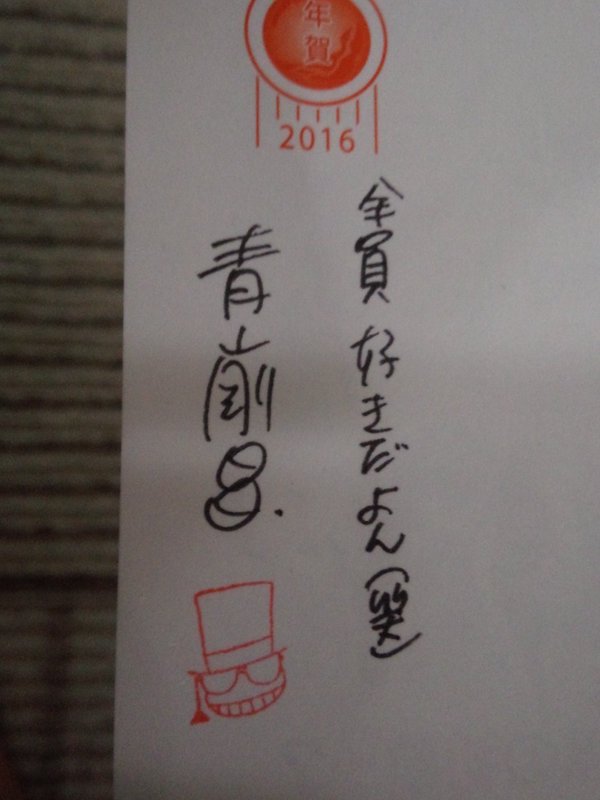 年賀
2016
全員 好きだよん(笑)
青山剛昌.